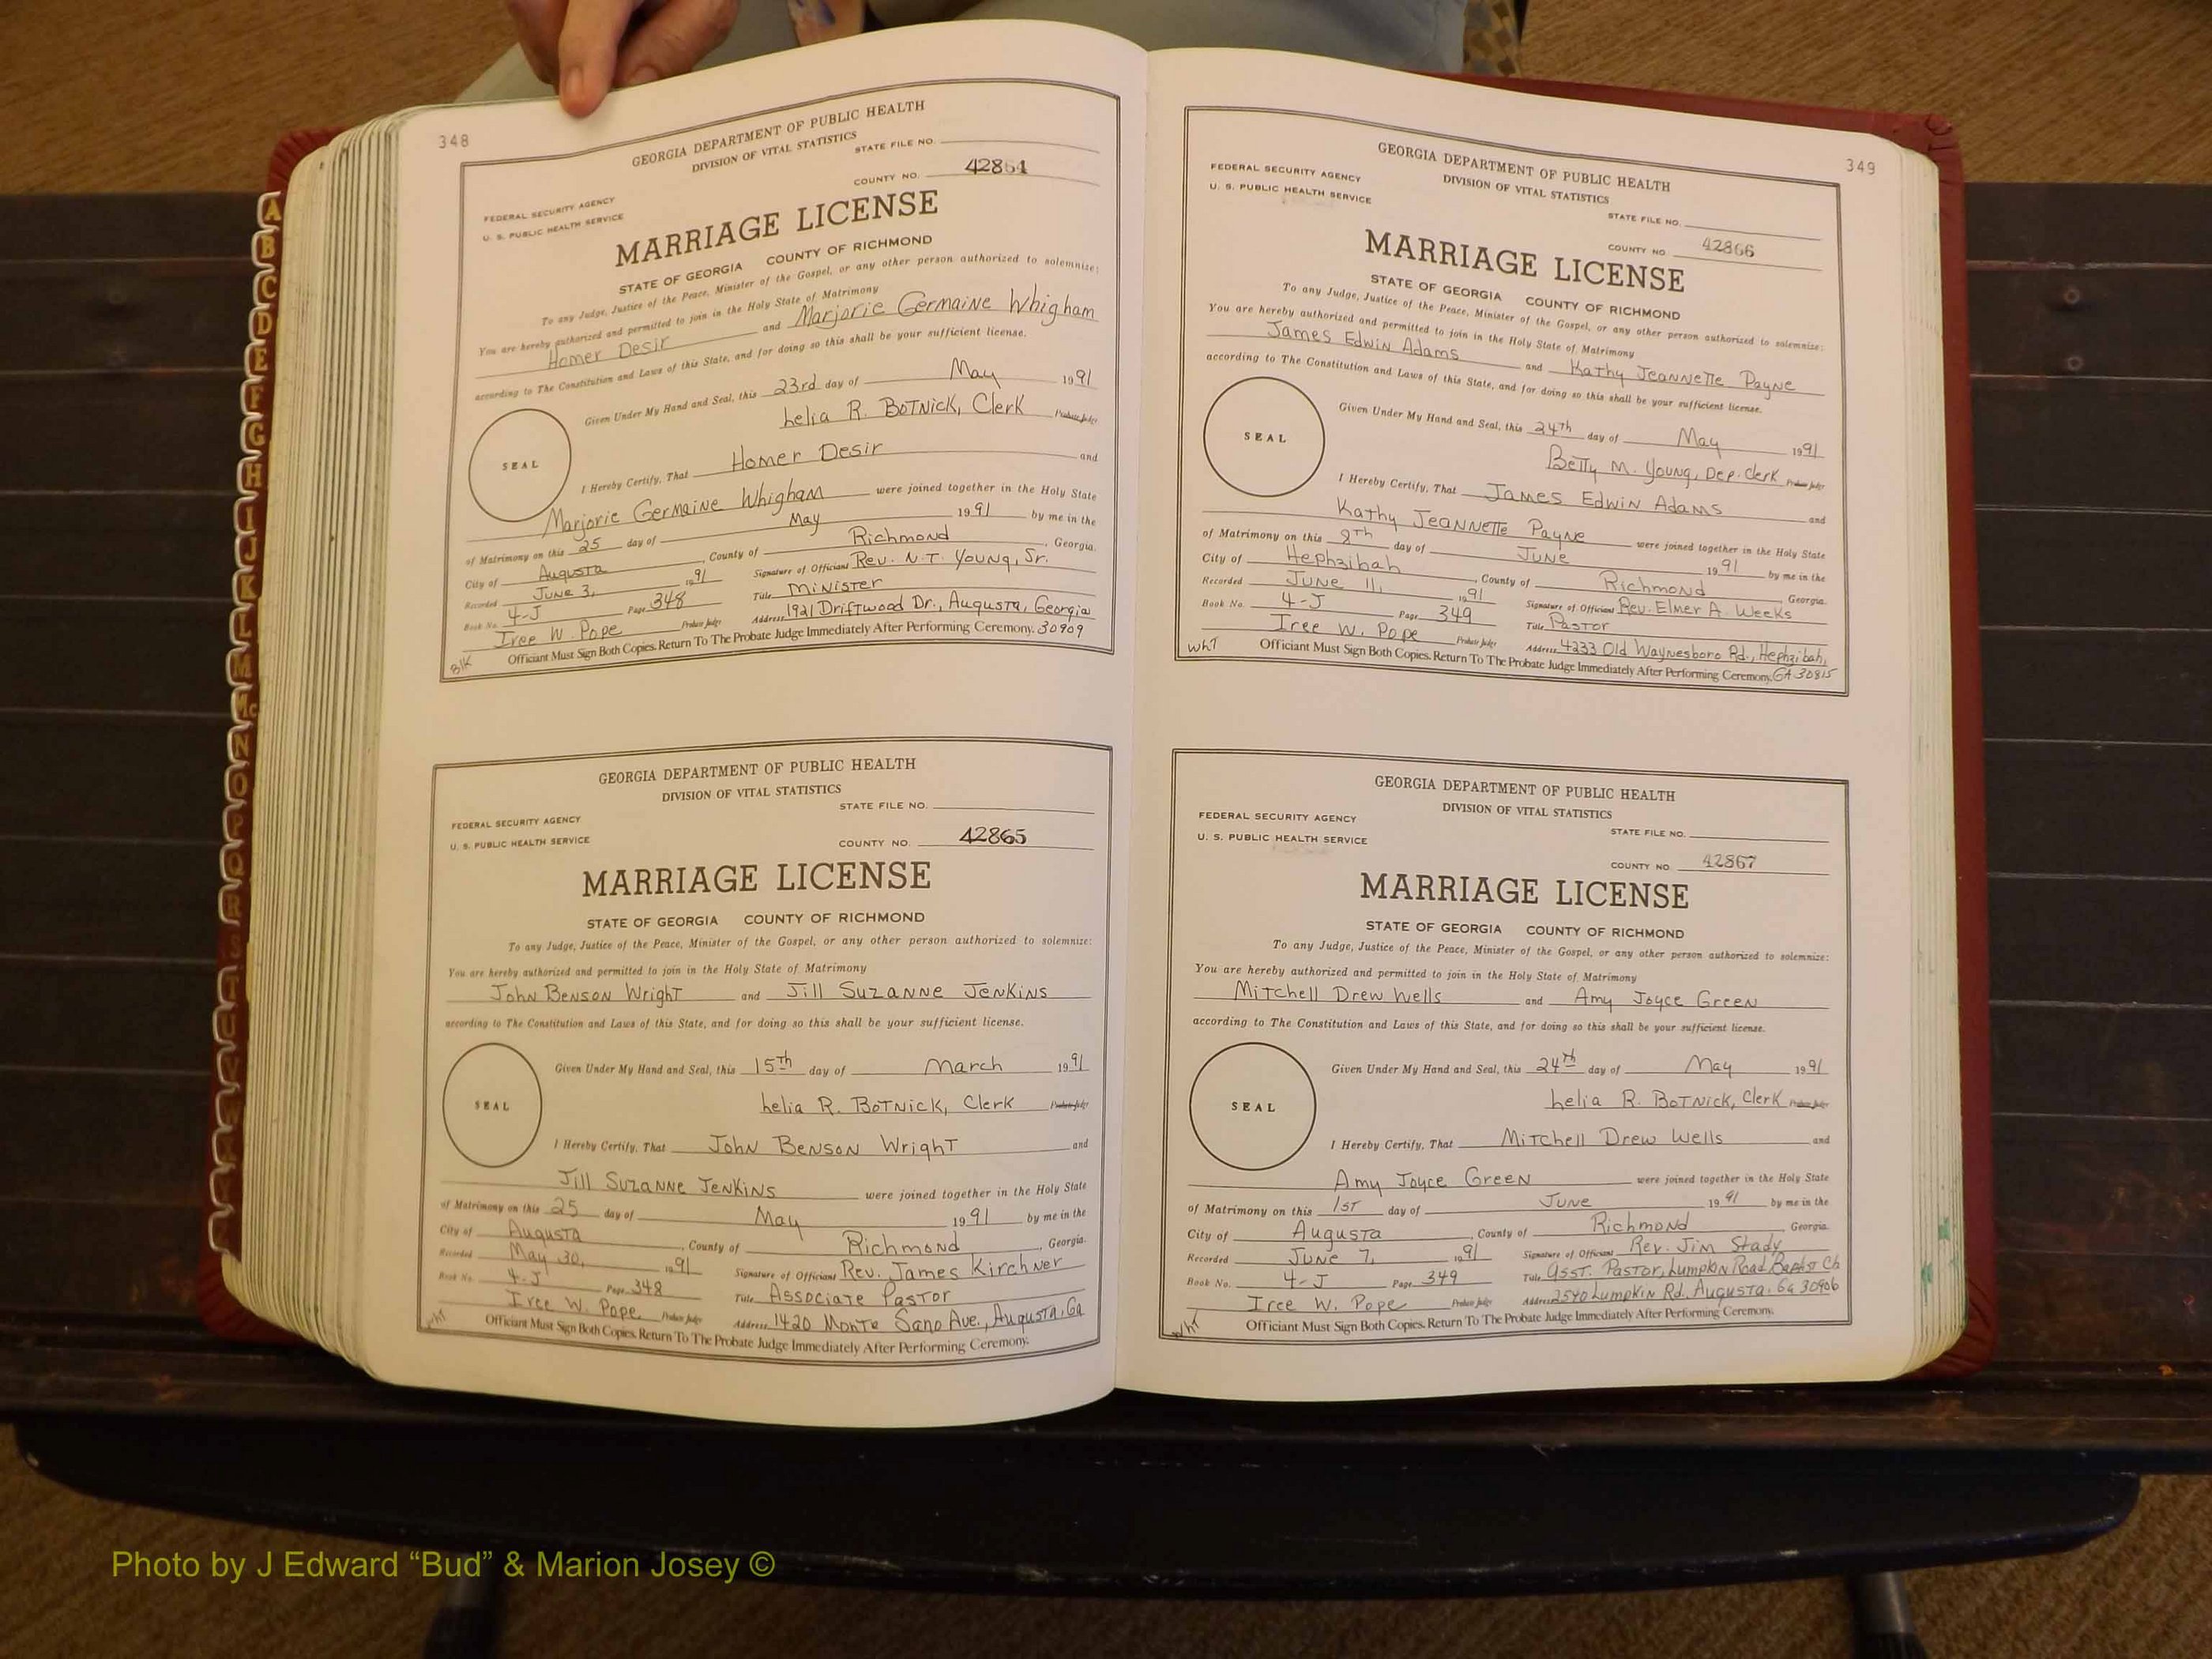 348
GEORGIA DEPARTMENT OF PUBLIC HEALTH
DIVISION OF VITAL STATISTICS
STATE FILE NO.
COUNTY NO. 42864
FEDERAL SECURITY AGENCY
U. S. PUBLIC HEALTH SERVICE
MARRIAGE LICENSE
STATE OF GEORGIA COUNTY OF RICHMOND
To any Judge, Justice of the Peace, Minister of the Gospel, or any other person authorized to solemnize:
You are hereby authorized and permitted to join in the Holy State of Matrimony
Homer Desir and Marjorie Germaine Whigham
according to The Constitution and Laws of this State, and for doing so this shall be your sufficient license.
Given Under My Hand and Seal, this 23rd day of May 1991
helia R. Botnick, Clerk Probate Judge
SEAL
I Hereby Certify, That Homer Desir and
Marjorie Germaine Whigham were joined together in the Holy State
of Matrimony on this 25 day of May 1991 by me in the
City of Augusta, County of Richmond, Georgia.
Recorded June 3, 1991 Signature of Officiant Rev. N.T. Young, Sr.
Book No. 4-J Page 348 Title Minister
Iree W. Pope Probate Judge Address 1921 Driftwood Dr., Augusta, Georgia
Officiant Must Sign Both Copies. Return To The Probate Judge Immediately After Performing Ceremony. 30909
Blk
GEORGIA DEPARTMENT OF PUBLIC HEALTH
DIVISION OF VITAL STATISTICS
STATE FILE NO.
FEDERAL SECURITY AGENCY
U. S. PUBLIC HEALTH SERVICE
COUNTY NO. 42865
MARRIAGE LICENSE
STATE OF GEORGIA COUNTY OF RICHMOND
To any Judge, Justice of the Peace, Minister of the Gospel, or any other person authorized to solemnize:
You are hereby authorized and permitted to join in the Holy State of Matrimony
John Benson Wright and Jill Suzanne Jenkins
according to The Constitution and Laws of this State, and for doing so this shall be your sufficient license.
Given Under My Hand and Seal, this 15th day of March 1991
helia R. Botnick, Clerk Probate Judge
SEAL
I Hereby Certify, That John Benson Wright and
Jill Suzanne Jenkins were joined together in the Holy State
of Matrimony on this 25 day of May 1991 by me in the
City of Augusta, County of Richmond, Georgia.
Recorded May 30, 1991 Signature of Officiant Rev. James Kirchner
Book No. 4-J Page 348 Title Associate Pastor
Iree W. Pope Probate Judge Address 1420 Monte Sano Ave., Augusta, Ga
Officiant Must Sign Both Copies. Return To The Probate Judge Immediately After Performing Ceremony.
wht
349
GEORGIA DEPARTMENT OF PUBLIC HEALTH
DIVISION OF VITAL STATISTICS
FEDERAL SECURITY AGENCY
U. S. PUBLIC HEALTH SERVICE
STATE FILE NO.
COUNTY NO. 42866
MARRIAGE LICENSE
STATE OF GEORGIA COUNTY OF RICHMOND
To any Judge, Justice of the Peace, Minister of the Gospel, or any other person authorized to solemnize:
You are hereby authorized and permitted to join in the Holy State of Matrimony
James Edwin Adams and Kathy Jeannette Payne
according to The Constitution and Laws of this State, and for doing so this shall be your sufficient license.
Given Under My Hand and Seal, this 24th day of May 1991
Betty M. Young, Dep. Clerk Probate Judge
SEAL
I Hereby Certify, That James Edwin Adams and
Kathy Jeannette Payne were joined together in the Holy State
of Matrimony on this 8th day of June 1991 by me in the
City of Hephzibah, County of Richmond Georgia.
Recorded June 11, 1991 Signature of Officiant Rev. Elmer A. Weeks
Book No. 4-J Page 349 Title Pastor
Iree W. Pope Probate Judge Address 4233 Old Waynesboro Rd., Hephzibah,
Officiant Must Sign Both Copies. Return To The Probate Judge Immediately After Performing Ceremony. GA 30815
wht
GEORGIA DEPARTMENT OF PUBLIC HEALTH
DIVISION OF VITAL STATISTICS
FEDERAL SECURITY AGENCY
U. S. PUBLIC HEALTH SERVICE
STATE FILE NO.
COUNTY NO. 42867
MARRIAGE LICENSE
STATE OF GEORGIA COUNTY OF RICHMOND
To any Judge, Justice of the Peace, Minister of the Gospel, or any other person authorized to solemnize:
You are hereby authorized and permitted to join in the Holy State of Matrimony
Mitchell Drew Wells and Amy Joyce Green
according to The Constitution and Laws of this State, and for doing so this shall be your sufficient license.
Given Under My Hand and Seal, this 24th day of May 1991
helia R. Botnick, Clerk Probate Judge
SEAL
I Hereby Certify, That Mitchell Drew Wells and
Amy Joyce Green were joined together in the Holy State
of Matrimony on this 1st day of June 1991 by me in the
City of Augusta, County of Richmond, Georgia.
Recorded June 7, 1991 Signature of Officiant Rev. Jim Stady
Book No. 4-J Page 349 Title Asst. Pastor, Lumpkin Road Baptist Ch
Iree W. Pope Probate Judge Address 2540 Lumpkin Rd. Augusta, Ga 30906
Officiant Must Sign Both Copies. Return To The Probate Judge Immediately After Performing Ceremony.
wht
A
B
C
D
E
F
G
H
I
J
K
L
M
Mc
N
O
P
Q
R
S
T
U
V
W
Photo by J Edward “Bud” & Marion Josey ©